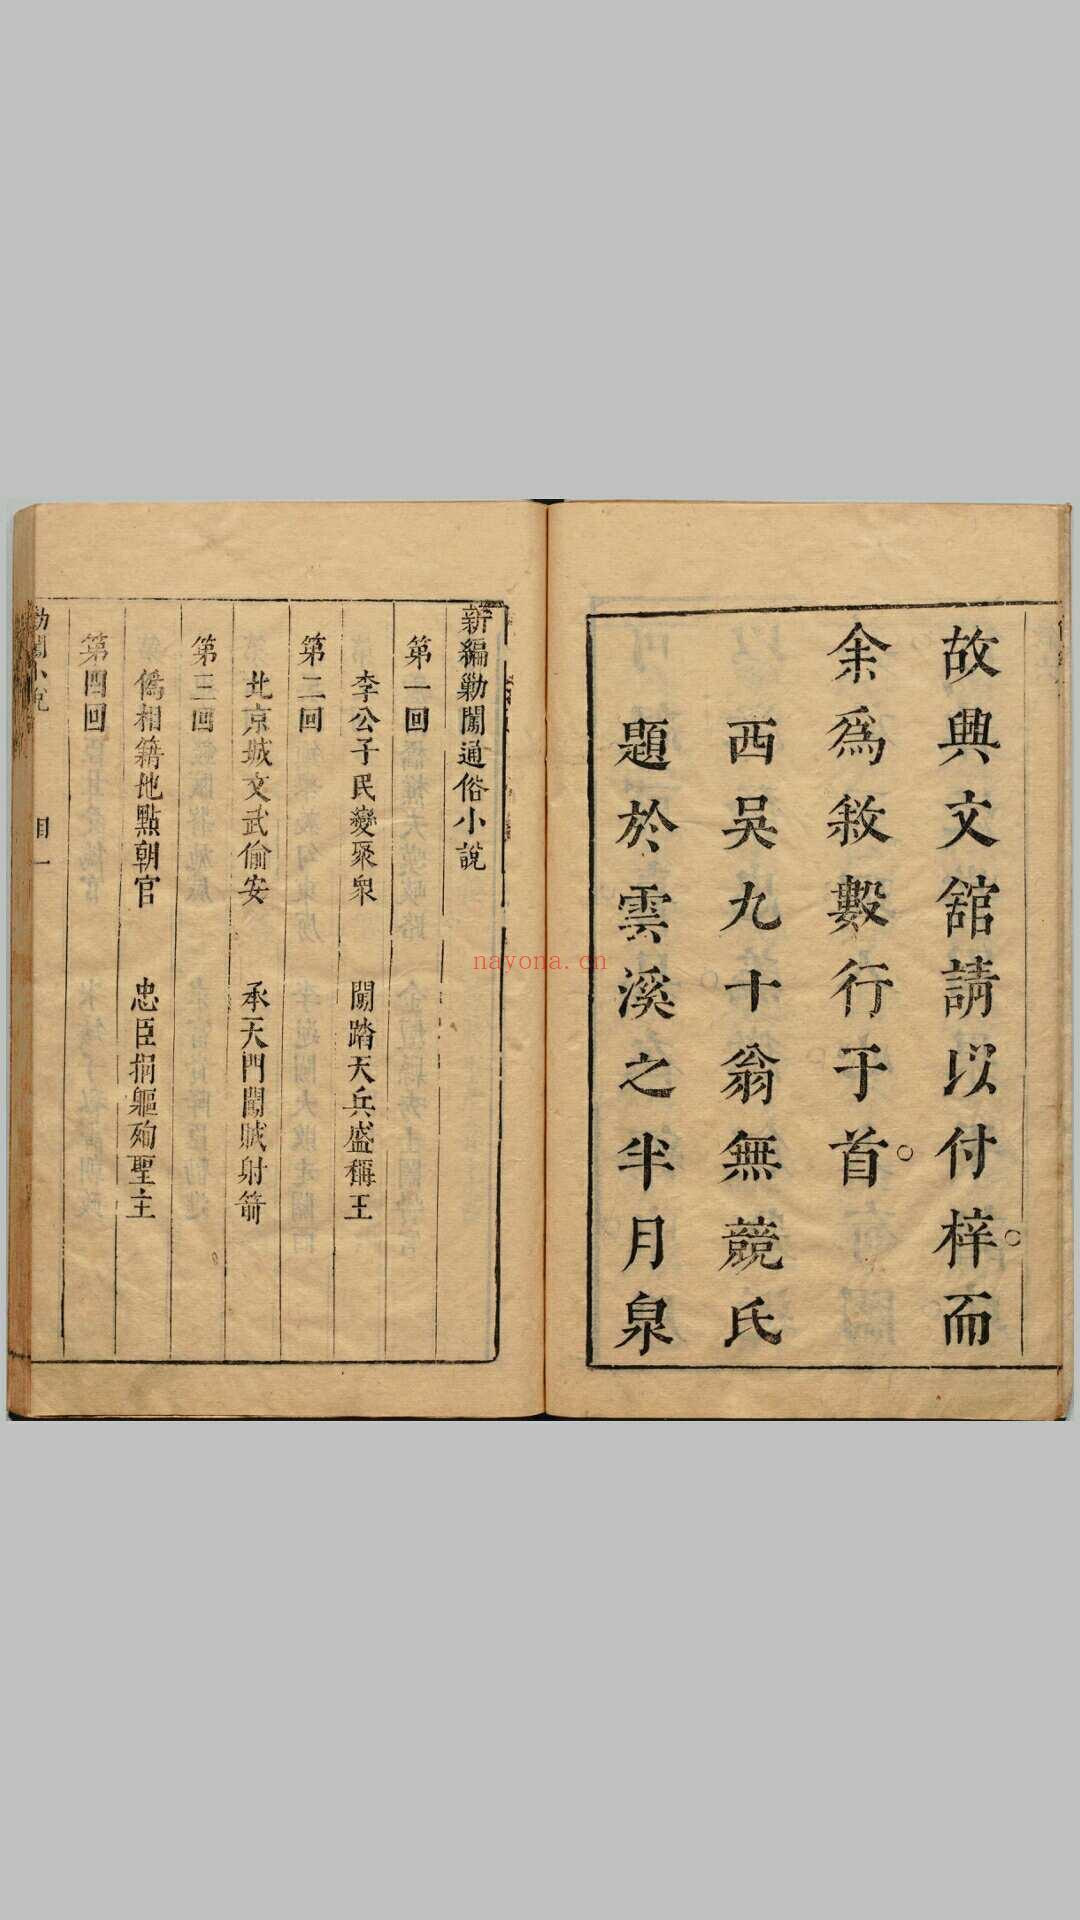 故興文舘請以付梓而
余爲敘數行于首
西吴九十翁無競氏
題於雲溪之半月泉
新編勦闖通俗小說
第一回
李公子民變聚衆　闖踏天兵盛稱王
第二回
北京城文武偷安　承天門闖賊射箭
第三回
僞相籍地點朝官　忠臣捐軀殉聖主
第四回
nayona.cn